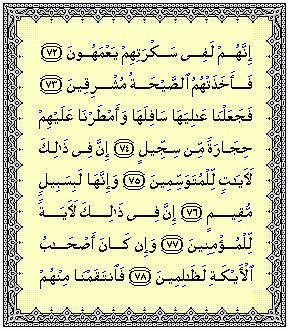 إِنَّهُمْ لَفِى سَكْرَتِهِمْ يَعْمَهُونَ ﴿٧٢﴾
فَأَخَذَتْهُمُ ٱلصَّيْحَةُ مُشْرِقِينَ ﴿٧٣﴾
فَجَعَلْنَا عَٰلِيَهَا سَافِلَهَا وَأَمْطَرْنَا عَلَيْهِمْ
حِجَارَةً مِّن سِجِّيلٍ ﴿٧٤﴾ إِنَّ فِى ذَٰلِكَ
لَءَايَٰتٍ لِّلْمُتَوَسِّمِينَ ﴿٧٥﴾ وَإِنَّهَا لَبِسَبِيلٍ
مُّقِيمٍ ﴿٧٦﴾ إِنَّ فِى ذَٰلِكَ لَءَايَةً
لِّلْمُؤْمِنِينَ ﴿٧٧﴾ وَإِن كَانَ أَصْحَٰبُ
ٱلْأَيْكَةِ لَظَٰلِمِينَ ﴿٧٨﴾ فَٱنتَقَمْنَا مِنْهُمْ